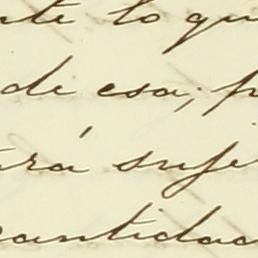 te lo qu
de esa; p
ará suje
cantidad